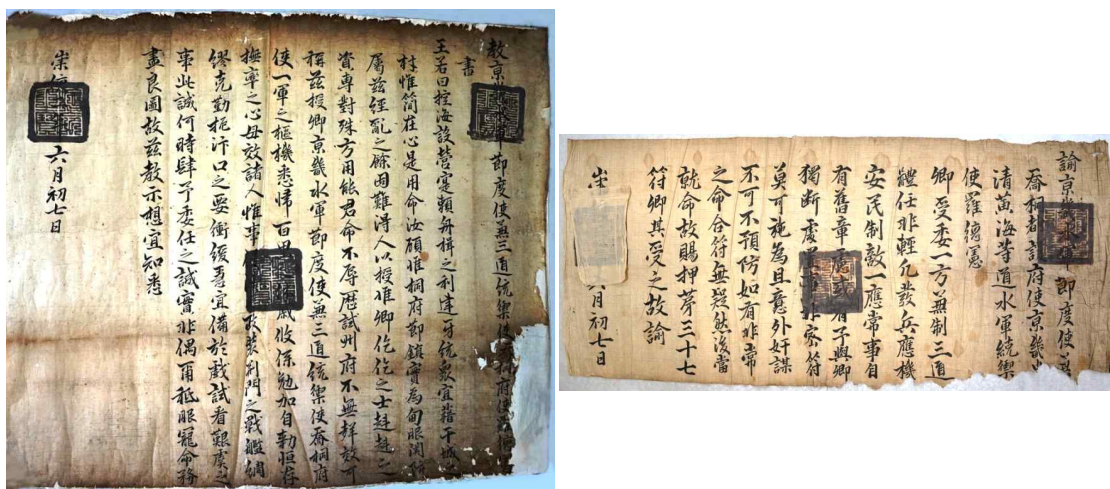 教京 節度使兼三道統禦使
書
王若曰控海設營寔賴舟楫之利建牙統衆宜藉干城之
材惟簡在心是用命汝顧惟桐府 鎮實爲甸服關
属茲經亂之餘固難得人以授惟卿仡仡之士赳赳之
資專對殊方用能君命不辱歷試州府不無 效可
稱茲授卿京畿水軍節度使兼三道統禦使喬桐府
使一軍之樞機悉歸百里 收係勉加自勅恒存
撫率之心毋效諸人惟事 裝荊門之戰艦綢
繆克勤扼汴口之要衝緩急宜備於戲試看艱虞之
事此誠何時肆予委任之誠實非偶爾祗服寵命務
盡良圖故茲教示想宜知悉
崇 六月初七日
諭京畿 節度使兼
喬桐都護府使京畿
清黃海等道水軍統禦
使羅德憲
卿受委一方兼制三道
體任非輕凡發兵應機
安民制敵一應常事自
有舊章慮或有予與卿
獨斷處 非密符
莫可施爲且意外奸謀
不可不預防如有非常
之命合符無疑然後當
就命故賜押第三十七
符卿其受之故諭
崇 六月初七日